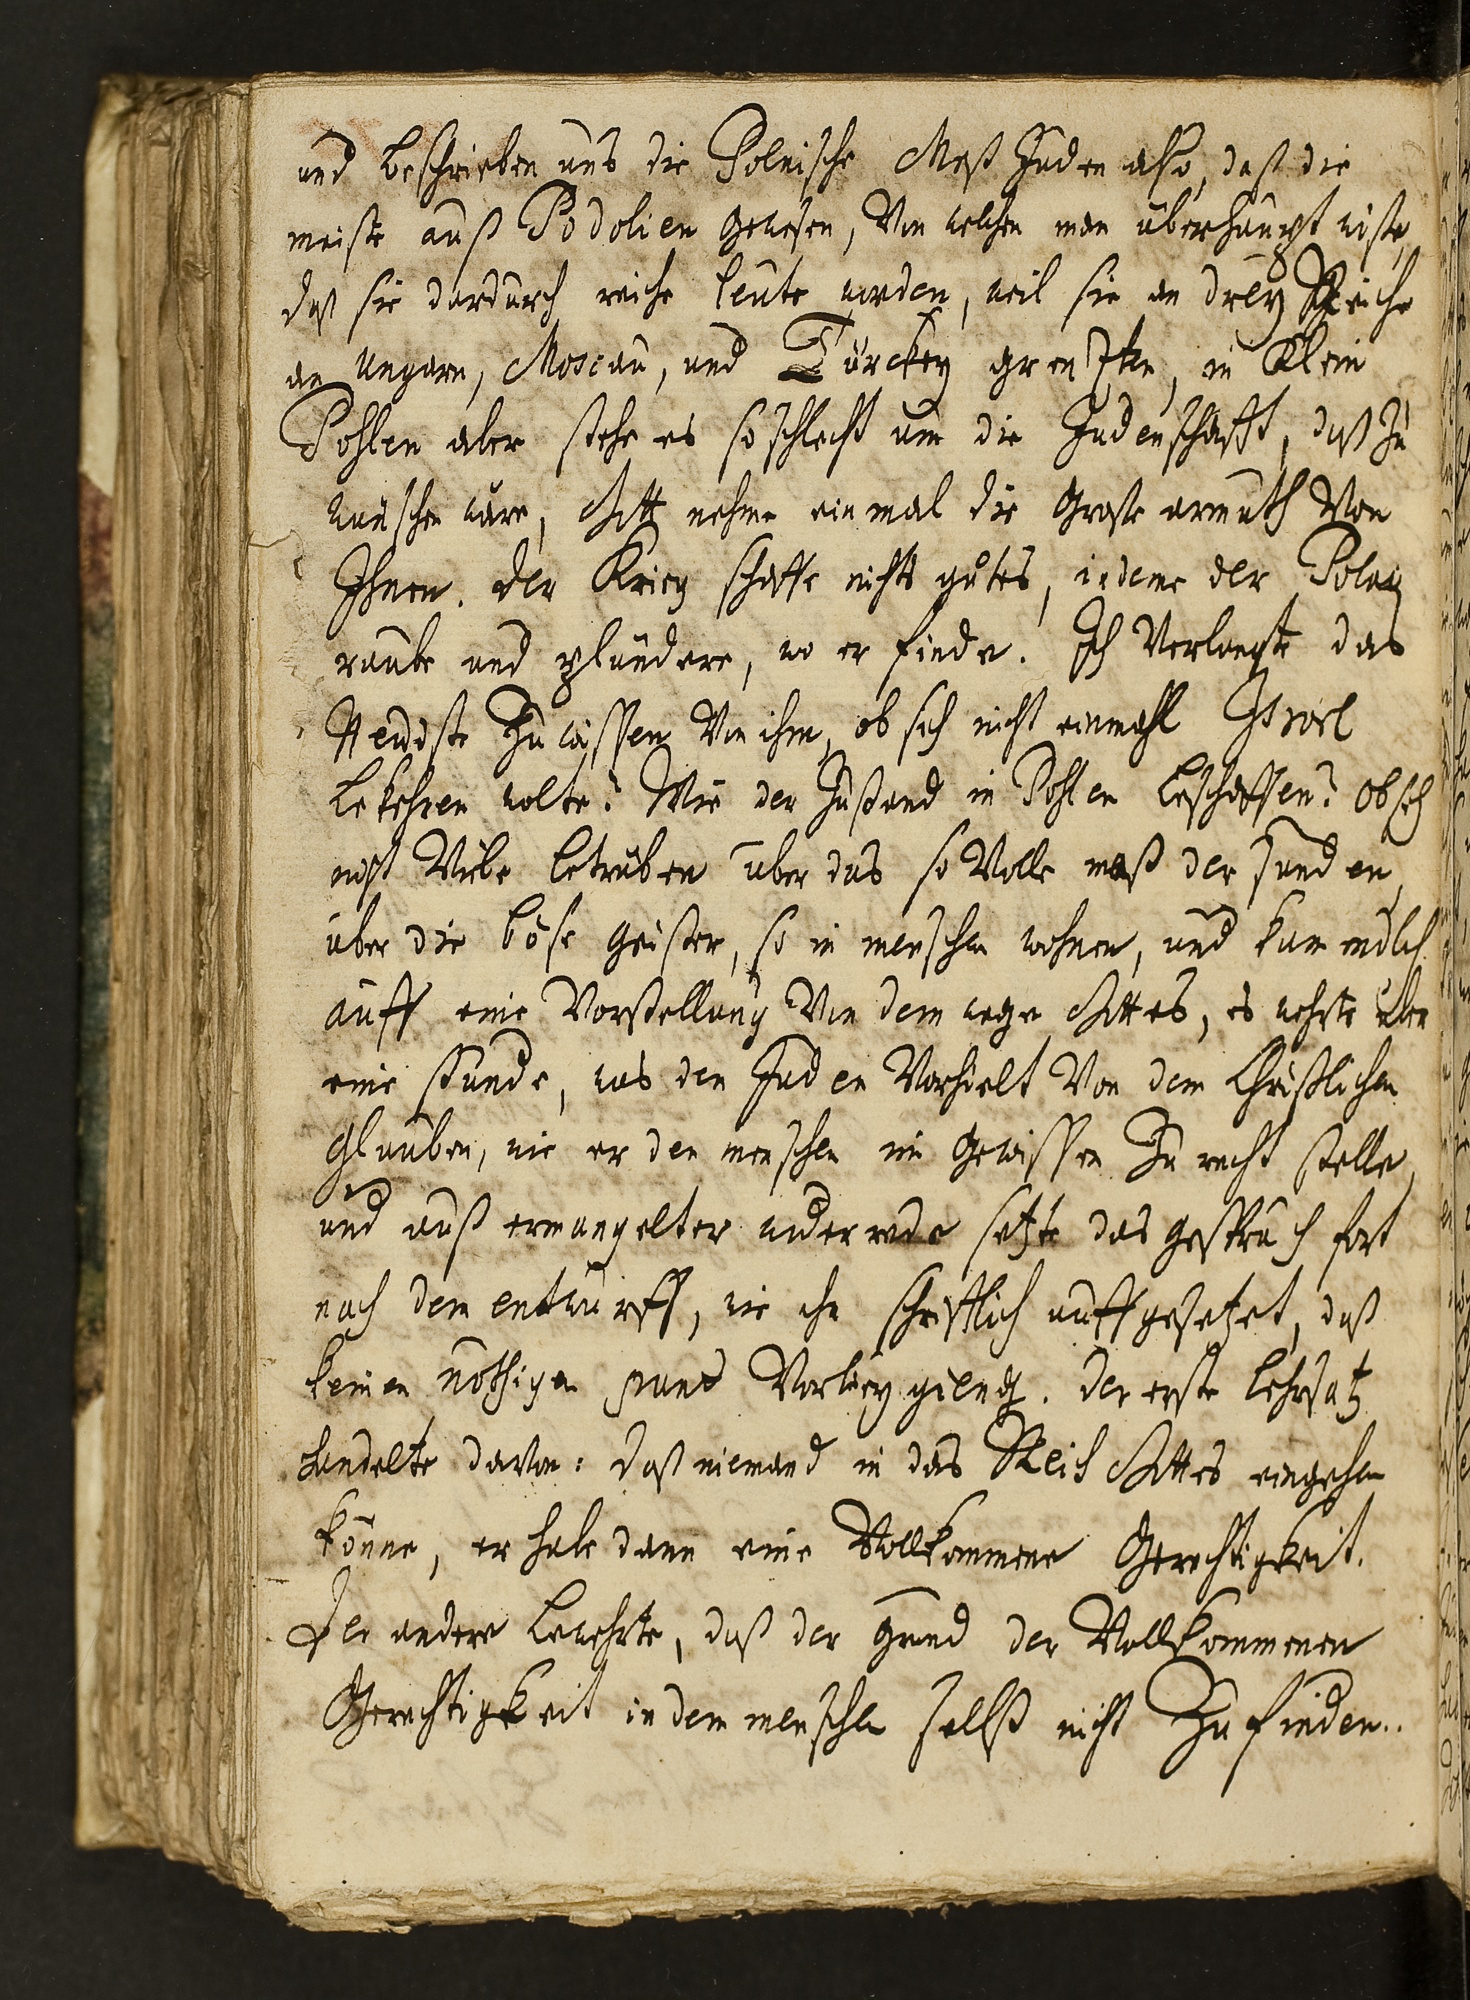 und beschrieben uns die Polnische Meß Juden also, daß die
meiste auß Podolien gewesen, Von welchen man überhaupt wiste,
daß sie dardurch reiche leute worden, weil sie an dreÿ Reiche
an Ungarn, Moscau, und Türckey grentzten, in Klein
Pohlen aber stehe es so schlecht um die Judenschafft, daß zu
wünschen wäre, Gott nehme einmal die Große armuth Von
Ihnen. der Krieg schaffe nichts gutes, indeme der Polag
raube und plündere, wo er finde. Ich Verlangte das
Neuste Zu wissen Von ihm, ob sich nicht einmahl Israel
bekehren wolte? Wie der Zustand in Pohlen beschaffen? Ob sich
nicht Viele betrüben über das so Volle maß der sunden,
über die böse geister, so in menschen wohnen, und kam endlich
auff eine Vorstellung Von dem wege Gottes, es wehrte über
eine stunde, was den Juden Vorhielt Von dem Christlichen
Glauben, wie er den menschen im Gewissen Zu recht stelle,
und auß ermangelter widerrede setzte das gespräch fort
nach dem entwurff, wie ihn schrifftlich auffgesetzet, daß
keinen nöthigen punct Vorbey gieng. der erste lehrsatz
handelte davon: daß niemand in das Reich Gottes eingehen
könne, er habe dann eine Vollkommene Gerechtigkeit.
Der andere bewehrte, daß der grund der Vollkommenen
Gerechtigkeit in dem menschen selbst nicht Zu finden..